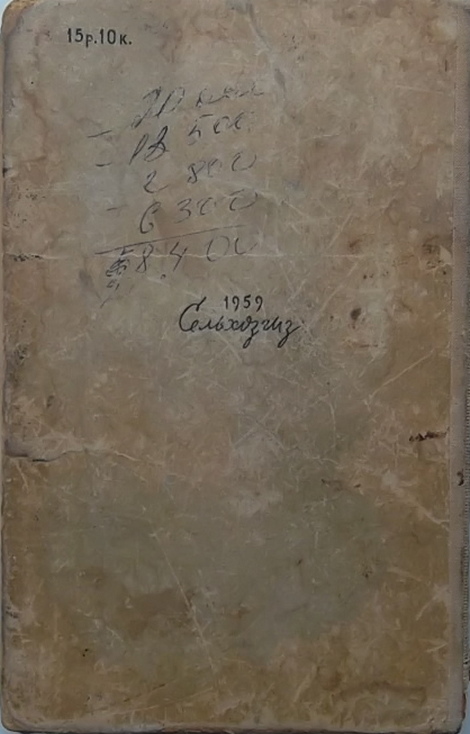 15р.10к.
500
2 800
- 6 300
8.400
1959
Сельхозгиз